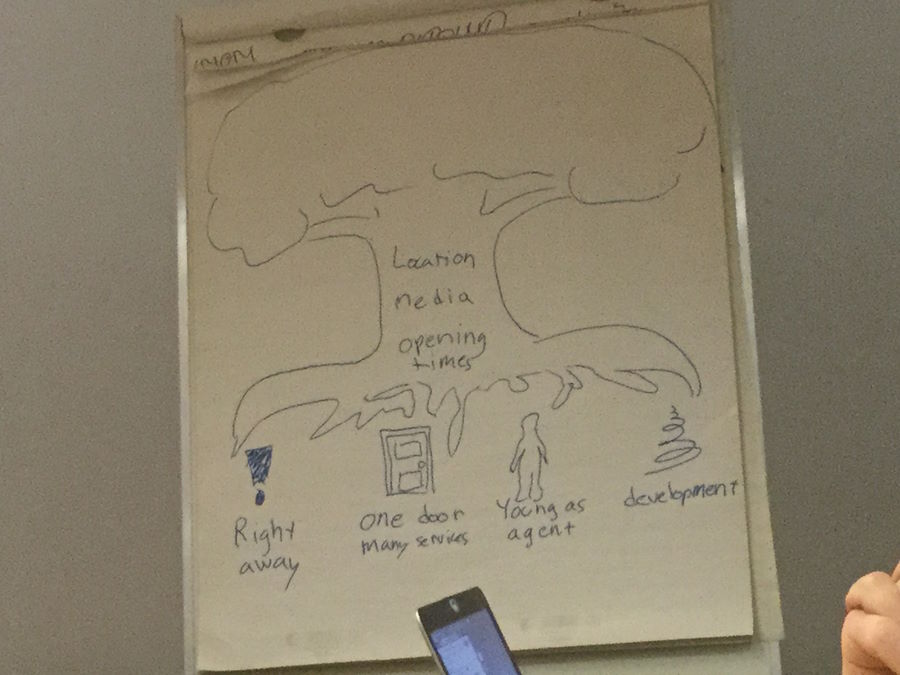 Location
media
opening
times
Right
away
one door
many services
Young as
agent
development